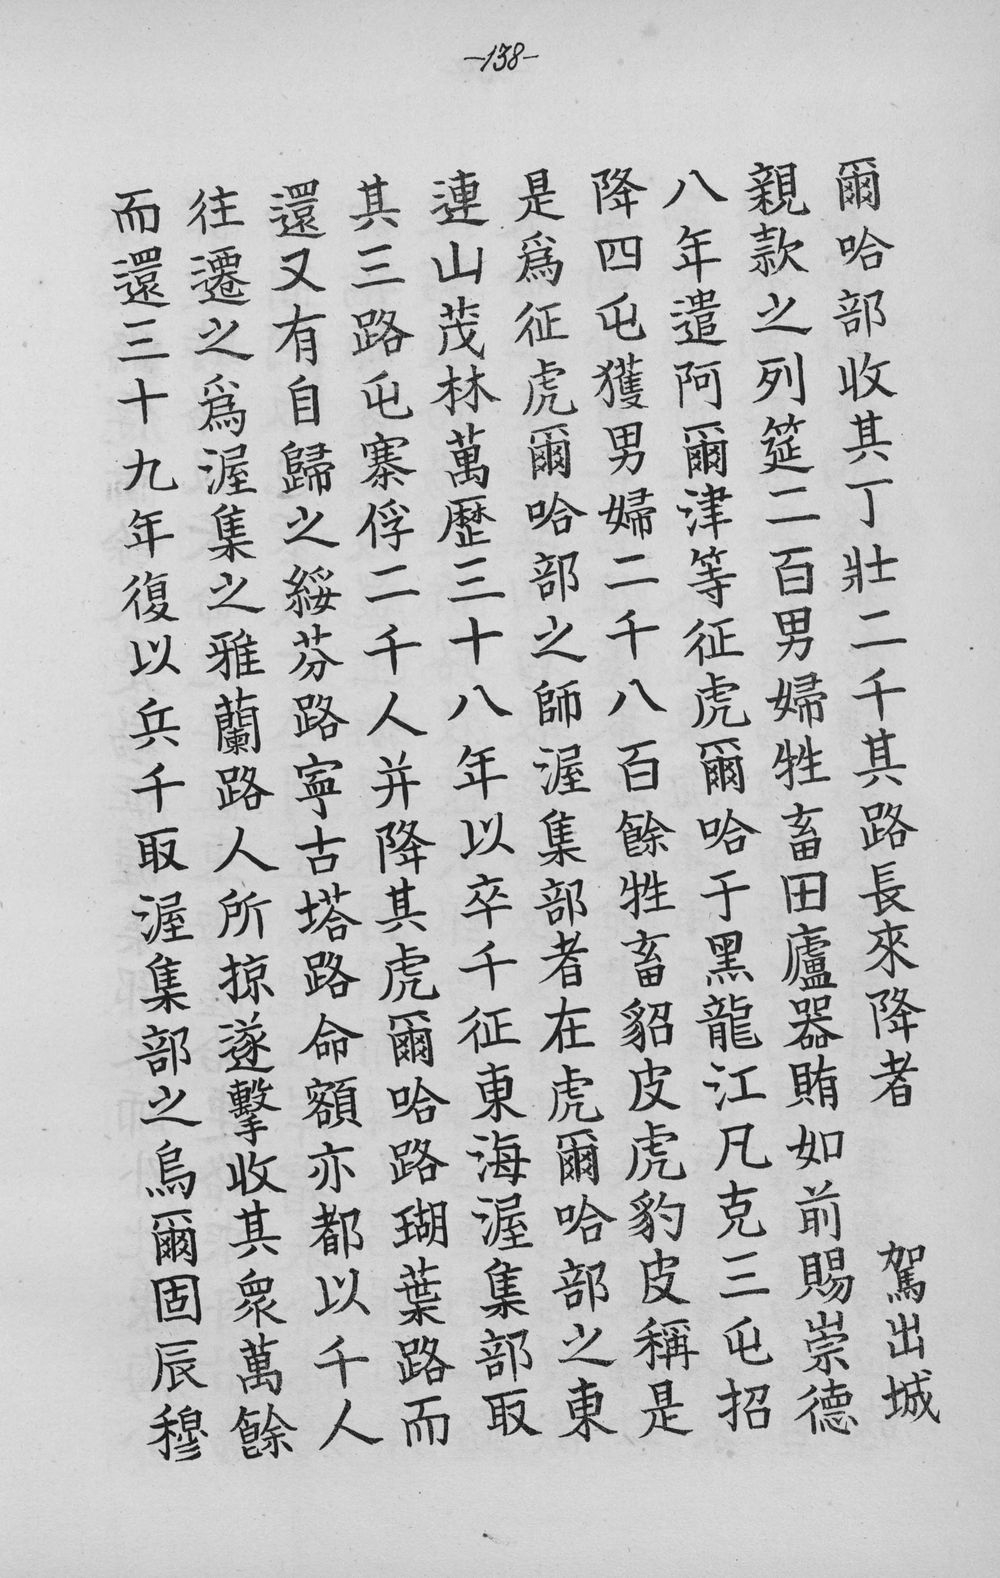 -138-
爾哈部收其丁壯二千其路長來降者　駕出城
親款之列筵二百男婦牲畜田廬器賄如前賜崇德
八年遣阿爾津等征虎爾哈于黑龍江凡克三屯招
降四屯獲男婦二千八百餘牲畜貂皮虎豹皮稱是
是爲征虎爾哈部之師渥集部者在虎爾哈部之東
連山茂林萬歷三十八年以卒千征東海渥集部取
其三路屯寨俘二千人并降其虎爾哈路瑚葉路而
還又有自歸之綏芬路寧古塔路命額亦都以千人
往遷之爲渥集之雅蘭路人所掠遂擊收其衆萬餘
而還三十九年復以兵千取渥集部之烏爾固辰穆